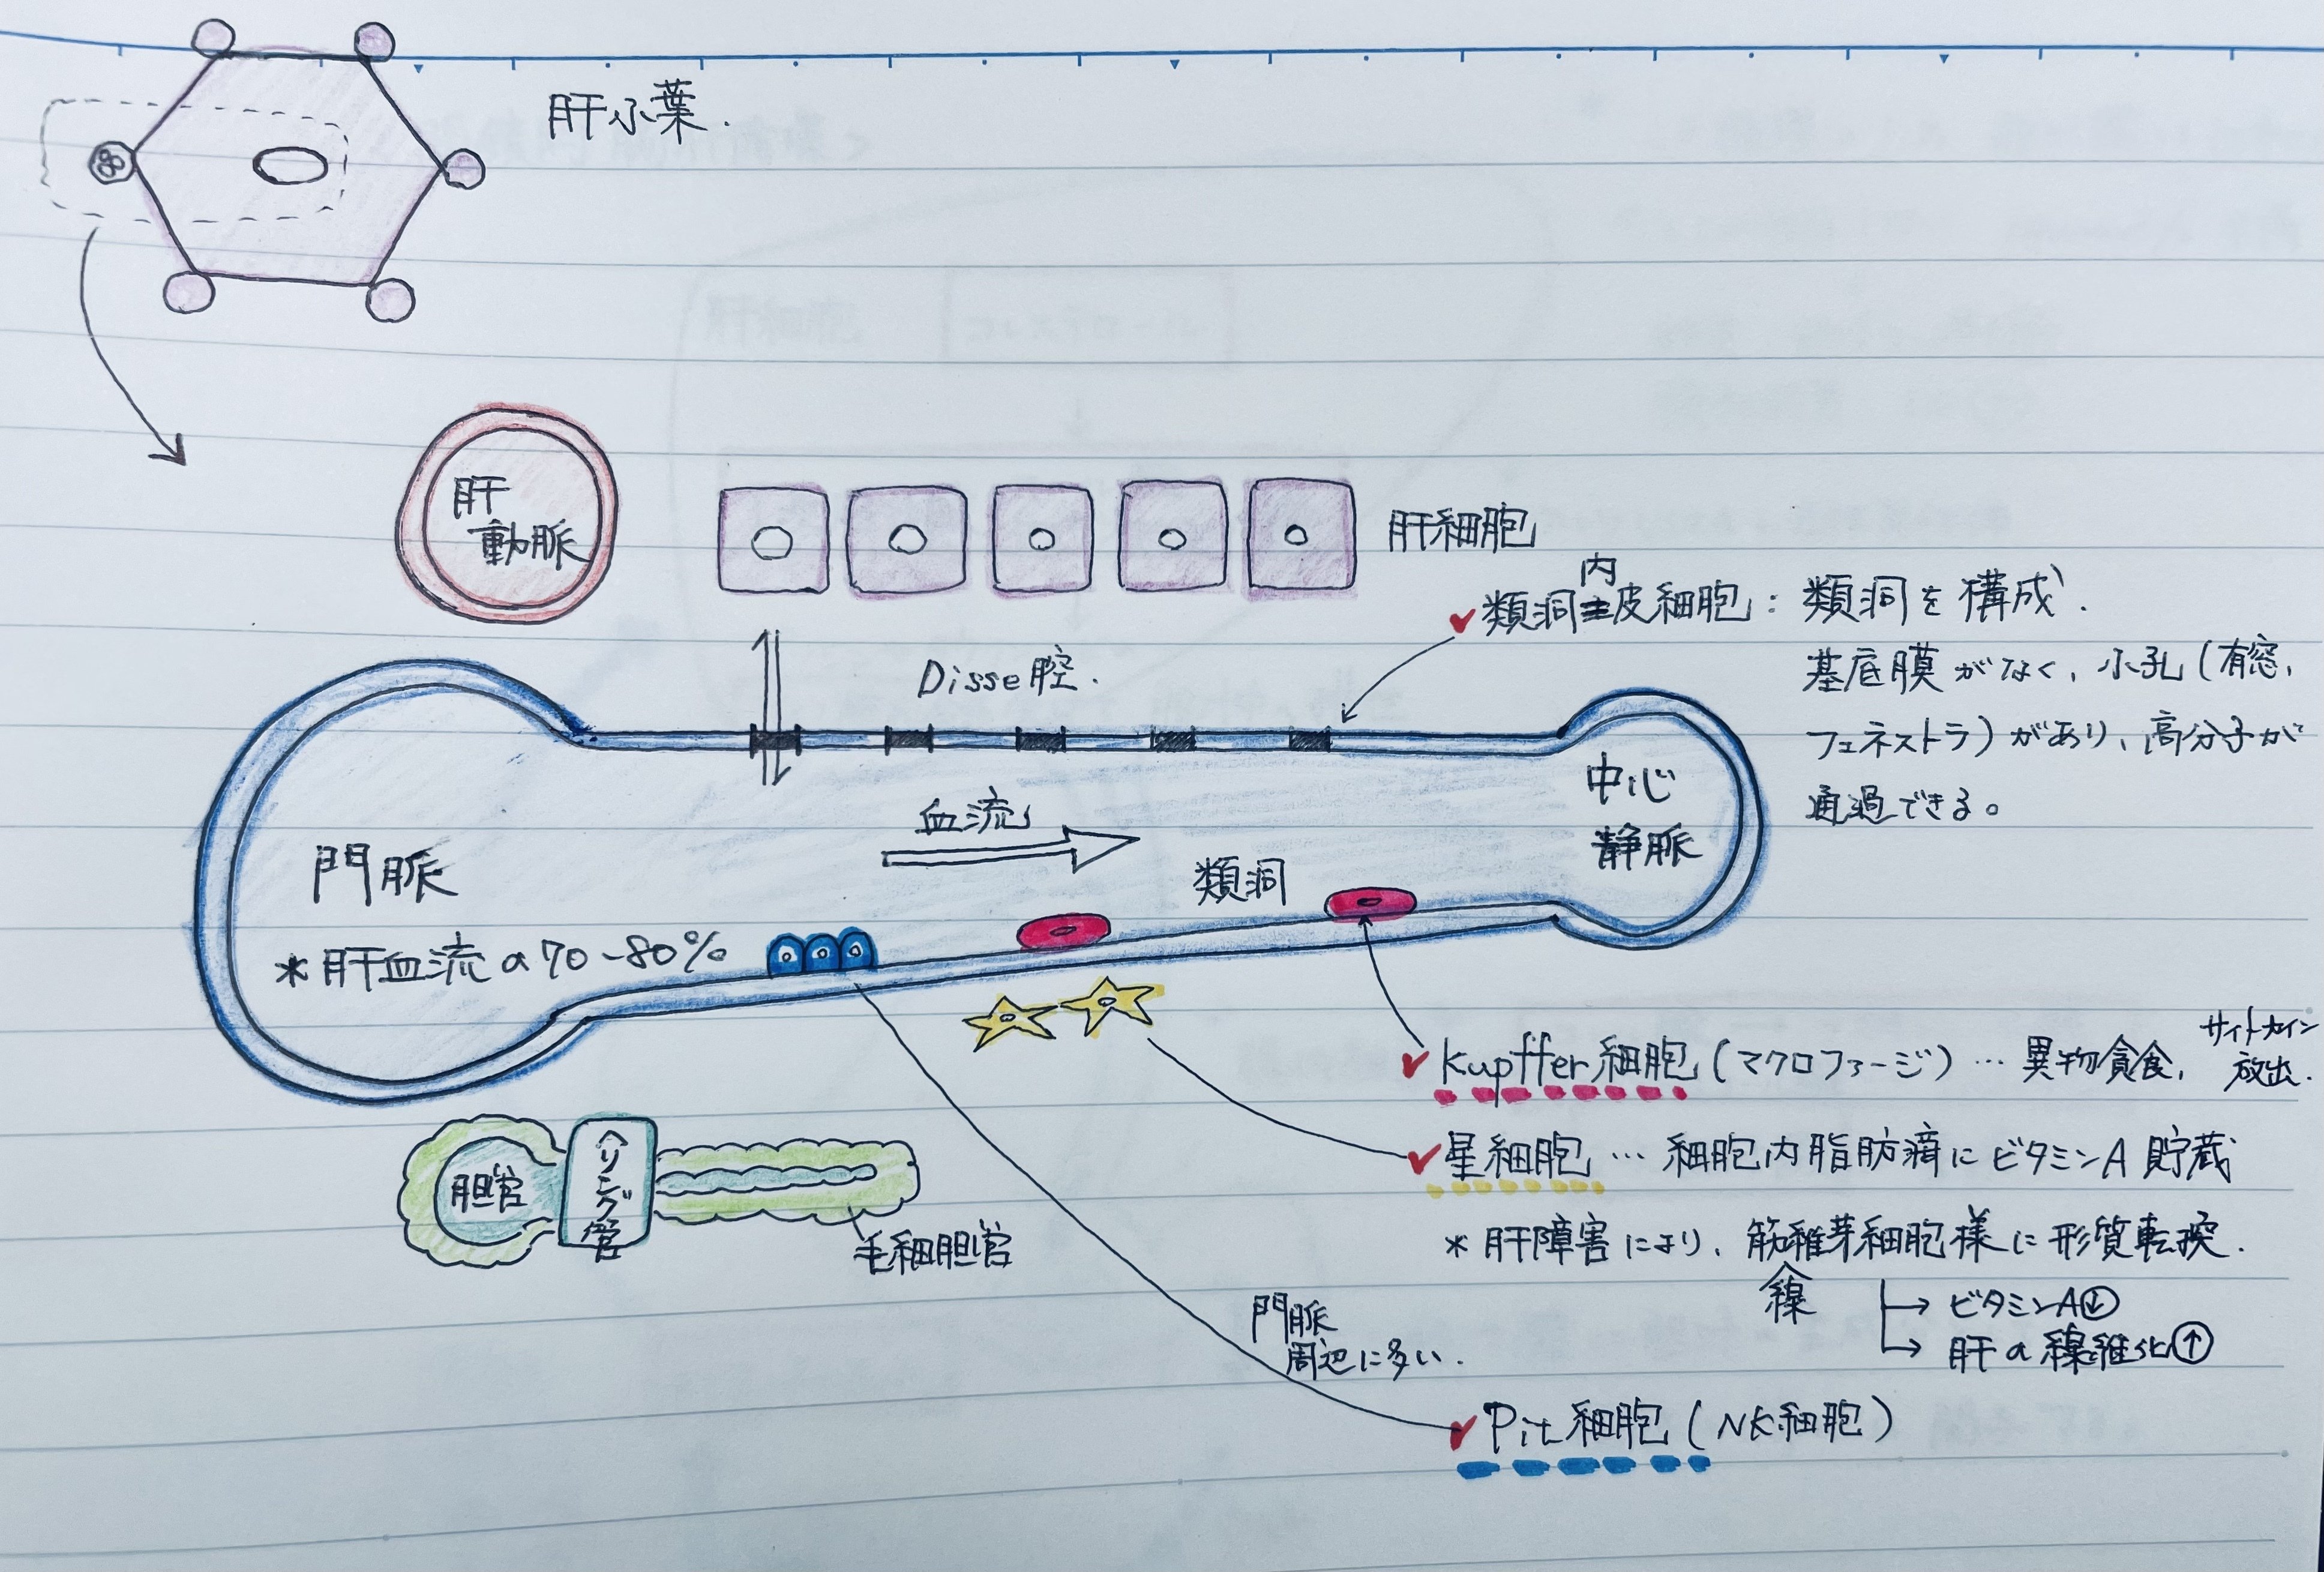 肝小葉.
肝
動脈
肝細胞
内
類洞皮細胞: 類洞を構成.
基底膜がなく, 小孔(有窓,
フェネストラ)があり、高分子が
通過できる。
Disse腔.
血流
中心
静脈
門脈
類洞
*肝血流の70-80%
Kupffer細胞(マクロファージ)… 異物貪食, サイトカイン
放出.
胆管
ヘリング管
毛細胆管
星細胞 … 細胞内脂肪滴にビタミンA貯蔵
*肝障害により, 筋稚芽細胞様に形質転換.
線
→ビタミンA↓
→肝の線維化↑
門脈
周辺に多い.
Pit細胞(NK細胞)